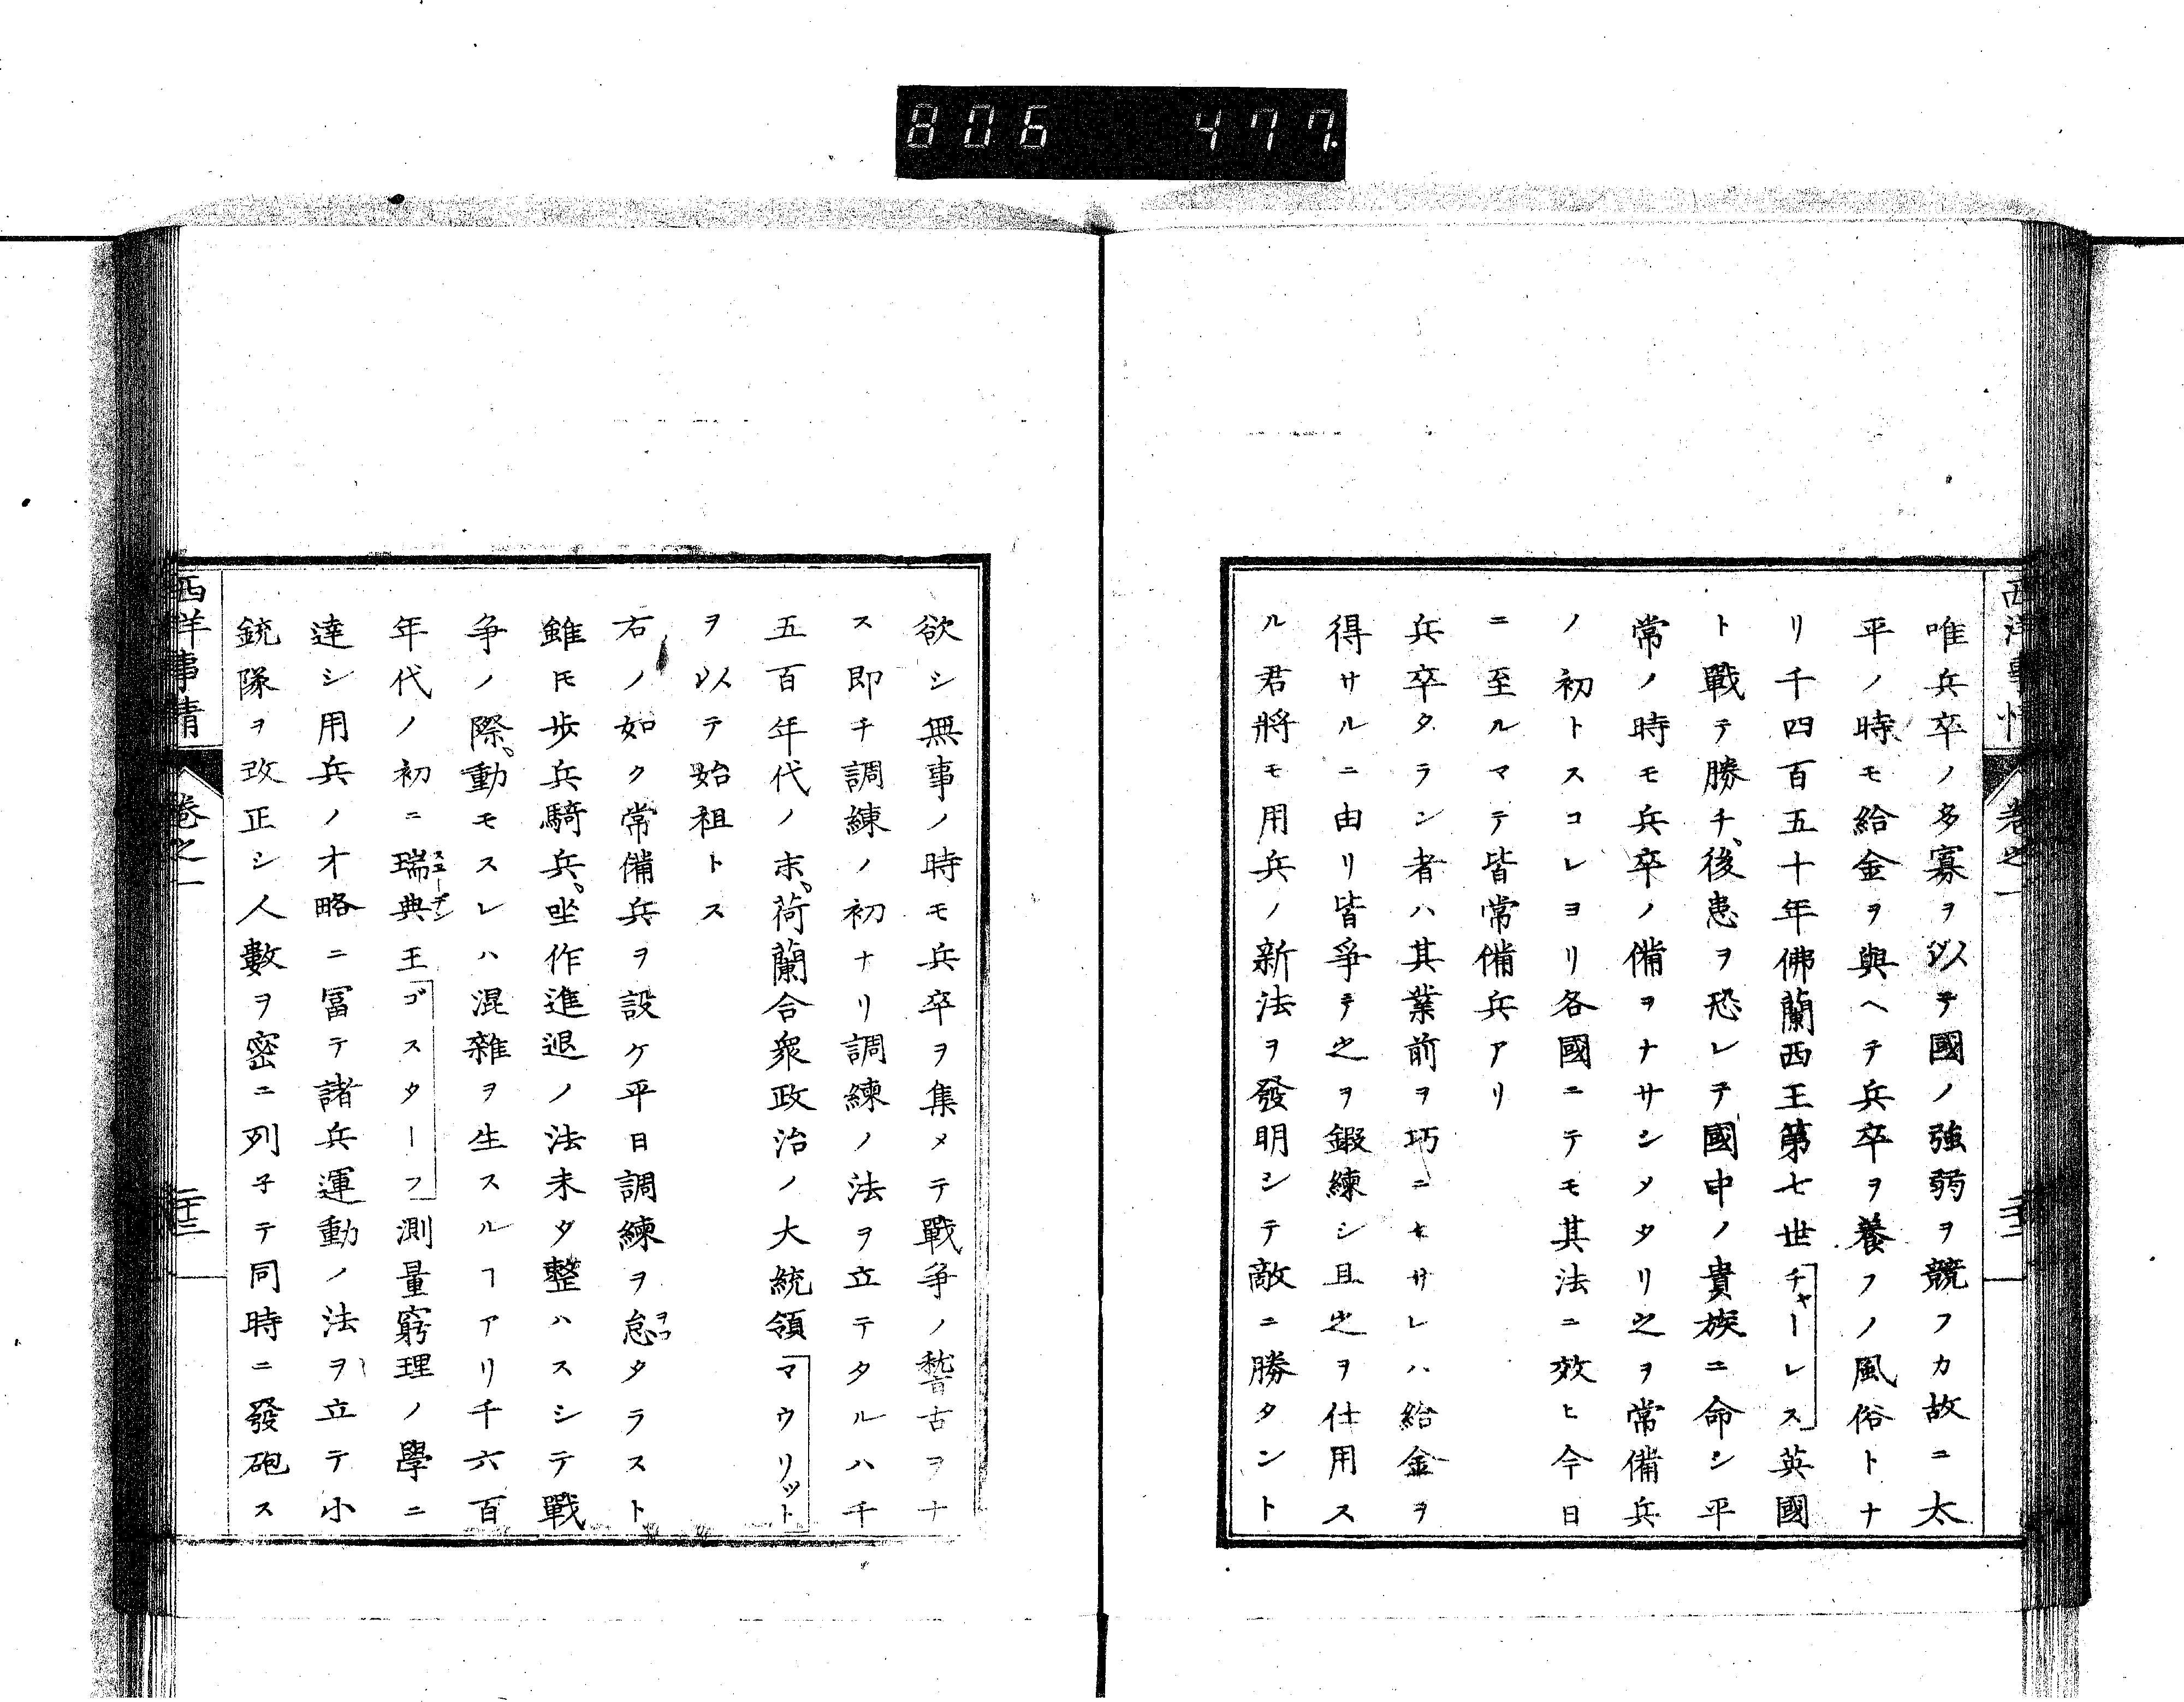 806 477.
西洋事情 卷之一
唯兵卒ノ多寡ヲ以テ國ノ強弱ヲ競フカ故ニ太
平ノ時モ給金ヲ與ヘテ兵卒ヲ養フノ風俗トナ
リ千四百五十年佛蘭西王第七世チャーレス英國
ト戰テ勝チ、後患ヲ恐レテ國中ノ貴族ニ命シ平
常ノ時モ兵卒ノ備ヲナサシメタリ之ヲ常備兵
ノ初トスコレヨリ各國ニテモ其法ニ效ヒ今日
ニ至ルマテ皆常備兵アリ
兵卒タラン者ハ其業前ヲ巧ニセサレハ給金ヲ
得サルニ由リ皆爭テ之ヲ鍛練シ且之ヲ仕用ス
ル君將モ用兵ノ新法ヲ發明シテ敵ニ勝タント
欲シ無事ノ時モ兵卒ヲ集メテ戰爭ノ稽古ヲナ
ス即チ調練ノ初ナリ調練ノ法ヲ立テタルハ千
五百年代ノ末。荷蘭合衆政治ノ大統領マウリット
ヲ以テ始祖トス
右ノ如ク常備兵ヲ設ケ平日調練ヲ怠タラスト
雖𪜈歩兵騎兵。坐作進退ノ法未タ整ハスシテ戰
争ノ際。動モスレハ混雜ヲ生スルヿアリ千六百
年代ノ初ニ瑞典王ゴスターフ測量窮理ノ學ニ
達シ用兵ノ才略ニ冨テ諸兵運動ノ法ヲ立テ小
銃隊ヲ改正シ人數ヲ密ニ列子テ同時ニ發砲ス
西洋事情 卷之一 二十三